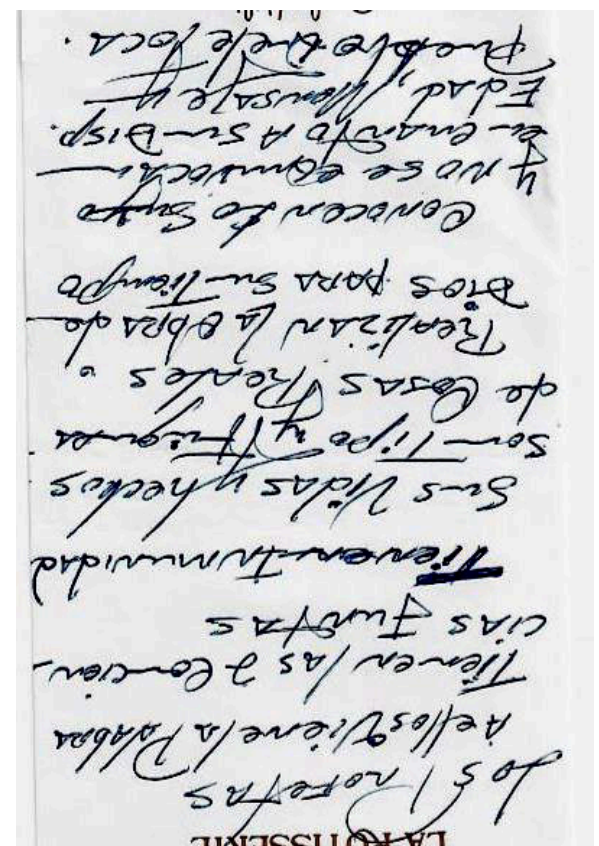 LA ROTISSERIE
Los Profetas
A ellos Viene la Palabra
Tienen las 2 Concien-
cias Juntas
Tienen Inmunidad
Sus Vidas y hechos
son Tipo y Figuras
de Cosas Reales.
Realizan la Obra de
Dios para su Tiempo
Conocen lo Suyo
y no se equivocan
en cuanto A su Disp.
Edad, Mensaje y
Pueblo que le toca.